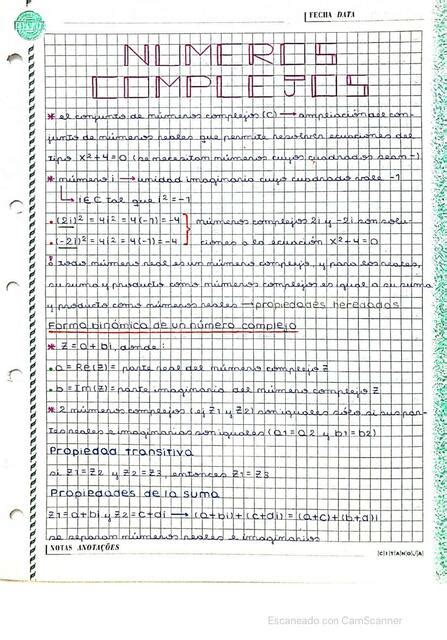 FECHA DATA
NÚMEROS
COMPLEJOS
* el conjunto de números complejos (C) → ampliación del con-
junto de números reales que permite resolver ecuaciones del
tipo x²+4=0 (se necesitan números cuyos cuadrados sean -)
* número i → unidad imaginaria cuyo cuadrado vale -1
i∈C tal que i²=-1
• (2i)² = 4i² = 4(-1) = -4 números complejos 2i y -2i son solu-
• (-2i)² = 4i² = 4(-1) = -4 ciones a la ecuación x²+4=0
! todo número real es un número complejo, y para los reales,
su suma y producto como números complejos es igual a su suma
y producto como números reales → propiedades heredadas
Forma binómica de un número complejo
* z = a + bi, donde:
• a = Re(z) = parte real del número complejo z
• b = Im(z) = parte imaginaria del número complejo z
* 2 números complejos (ej z1 y z2) son iguales sólo si sus par-
tes reales e imaginarias son iguales (a1=a2 y b1=b2)
Propiedad transitiva
si z1=z2 y z2=z3, entonces z1=z3
Propiedades de la suma
z1=a+bi y z2=c+di → (a+bi)+(c+di) = (a+c)+(b+d)i
se separan números reales e imaginarios
NOTAS ANOTAÇÕES
CITANOVA
Escaneado con CamScanner